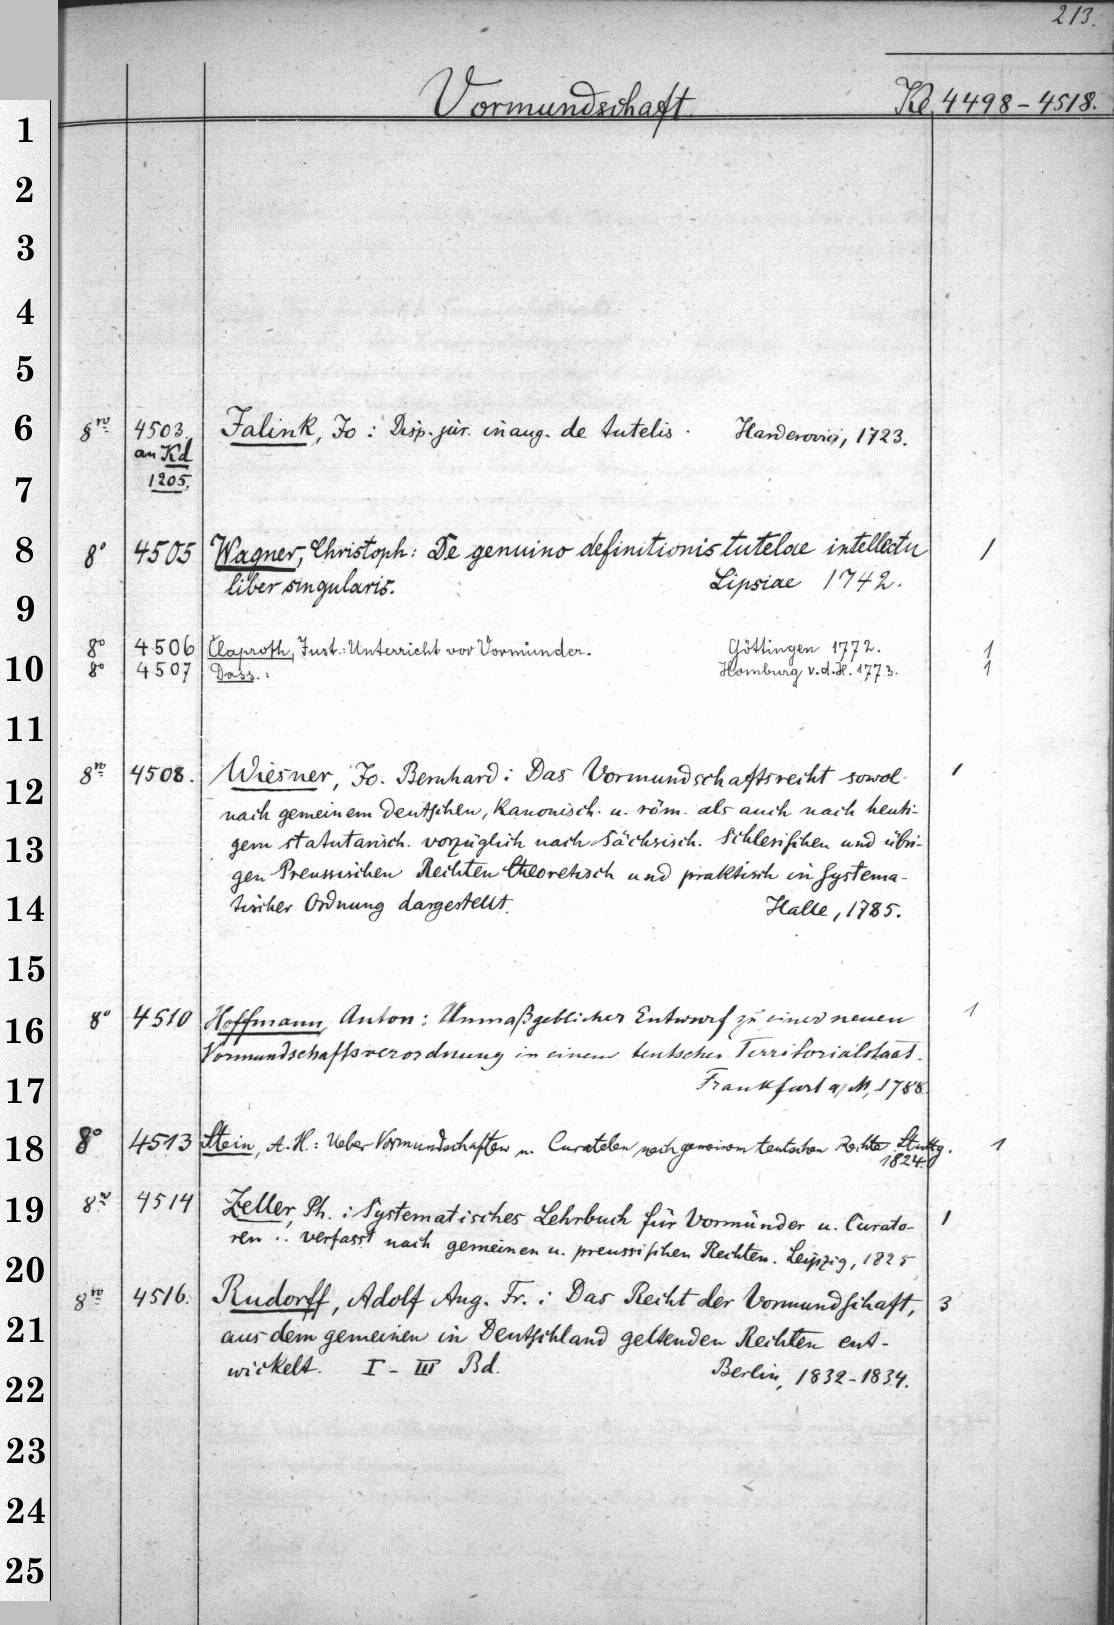 213.
Vormundschaft. Ke 4498-4518.
1
2
3
4
5
6 8vo 4503. Falink, Jo: Disp. jur. inaug. de tutelis. Harderovici, 1723.
an Kd
7 1205.
8 8° 4505 Wagner, Christoph: De genuino definitionis tutelae intellectu 1
liber singularis. Lipsiae 1742.
9
8° 4506 Claproth, Just.: Unterricht vor Vormünder. Göttingen 1772. 1
10 8° 4507 Dass.: Homburg v.d.H. 1773. 1
11
12 8vo 4508. Wiesner, Jo. Bernhard: Das Vormundschaftsrecht sowol 1
nach gemeinem deutschen, kanonisch. u. röm. als auch nach heuti-
13 gem statutarisch. vorzüglich nach Sächsisch. Schlesischen und übri-
gen Preussischen Rechten theoretisch und praktisch in Systema-
14 tischer Ordnung dargestellt. Halle, 1785.
15
16 8° 4510 Hoffmann, Anton: Unmaßgeblicher Entwurf zu einer neuen 1
Vormundschaftsverordnung in einem teutschen Territorialstaat.
17 Frankfurt a/M, 1788.
18 8° 4513 Stein, A. H.: Ueber Vormundschaften u. Curatelen nach gemeinem teutschen Rechte. Stuttg. 1
1824.
19 8vo 4514 Zeller, Ph.: Systematisches Lehrbuch für Vormünder u. Curato- 1
ren .. verfasst nach gemeinen u. preussischen Rechten. Leipzig, 1825
20
8vo 4516. Rudorff, Adolf Aug. Fr.: Das Recht der Vormundschaft, 3
21 aus dem gemeinen in Deutschland geltenden Rechten ent-
wickelt. I - III Bd. Berlin, 1832-1834.
22
23
24
25